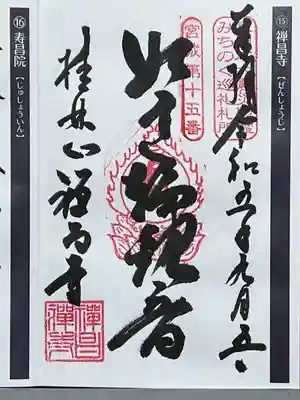 ⑮ 禅昌寺
【ぜんしょうじ】
奉拝 令和五年九月五日
みちのく巡礼札所
宮城第十五番
如意輪観音
桂林山 禅昌寺
禪昌
禪寺
⑯ 寿昌院
【じゅしょういん】